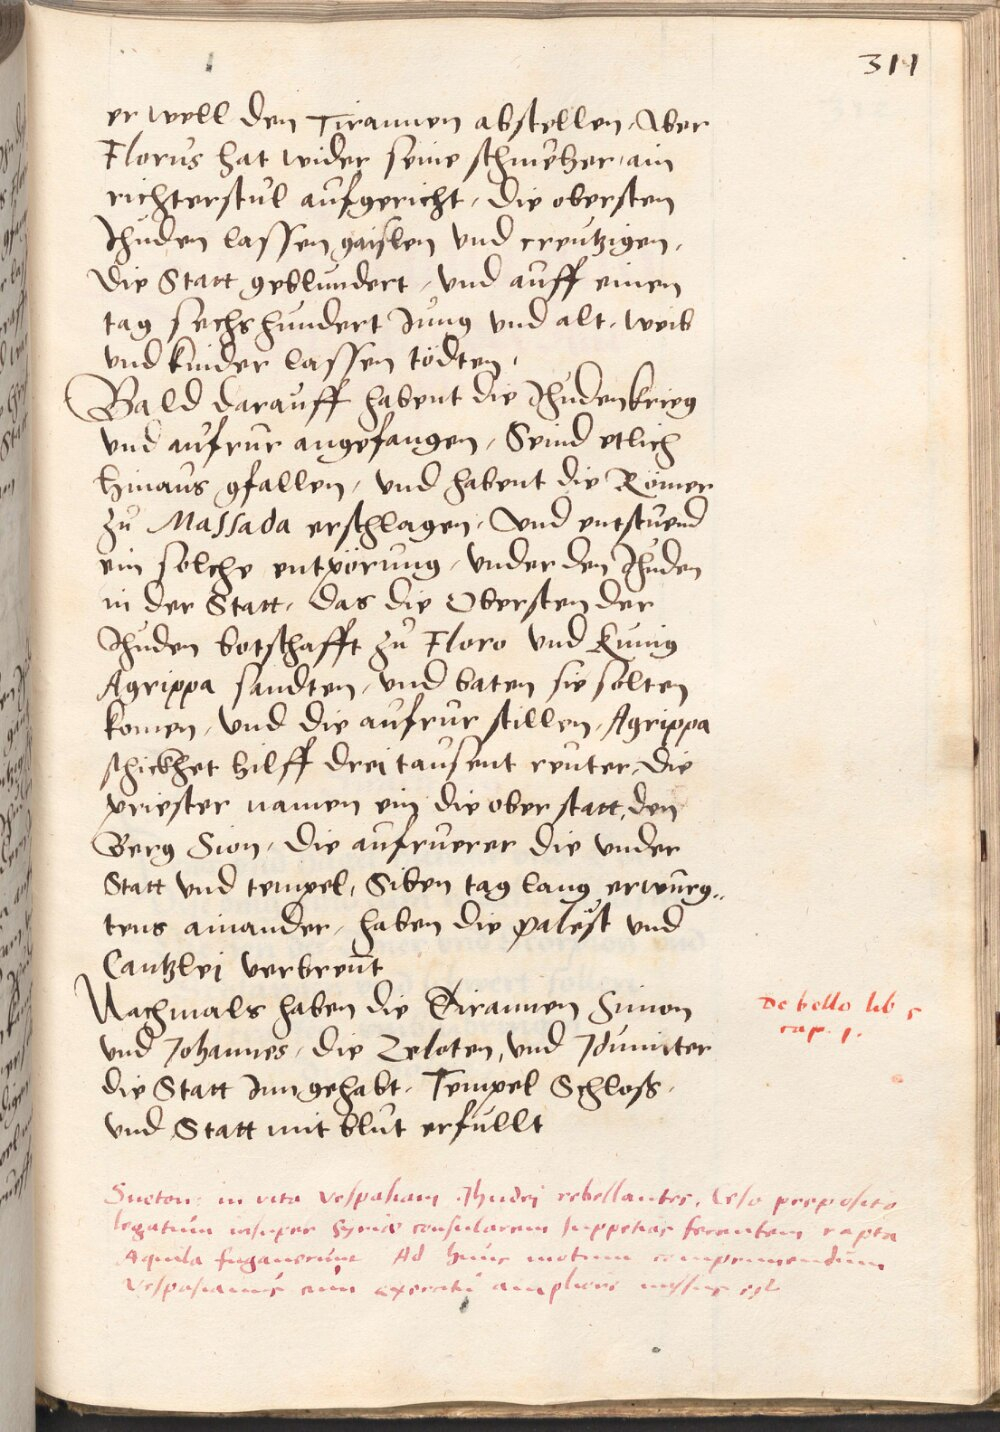 311
er well den Tirannen abstellen, Aber
Florus hat wider seine schmeher, ain
richterstul aufgericht, die obersten
Jhuden lassen gaislen vnd creutzigen,
die Statt geblundert, vnd auff einen
tag sechshundert Jung vnd alt, weib
vnd kinder lassen tödten,
Bald darauff habent die Jhuden krieg
vnd aufrur angefangen, Seind etlich
hinaus gfallen, vnd habent die Römer
zu Massada erschlagen, vnd entstuend
ein solche entpörung, vnder den Jhuden
in der Statt, das die Obersten der
Jhuden botschafft zu Floro vnd Kunig
Agrippa sandten, vnd baten sie solten
komen, vnd die aufrur stillen, Agrippa
schickhet hilff drei tausent reuter, die
priester namen ein die ober statt, den
Berg Sion, die aufruerer die vnder
Statt vnd tempel, Siben tag lang erwurg„
tens ainander, haben die palest vnd
Cantzlej verbrent
Nachmals haben die Tirannen Simon
vnd Johannes, die Zeloten, vnd Idumiter
die Statt Inn gehabt, Tempel Schloß,
vnd Statt mit blut erfullt
De bello lib 5
cap. 1.
Sueton: in vita Vespasiani Jhudei rebellantes, Ceso preposito
legatum insuper Syriae consularem suppetias ferentem rapta
Aquila fugauerunt Ad hunc motum compermendum
Vespasianus cum exercitu ampliore missus est